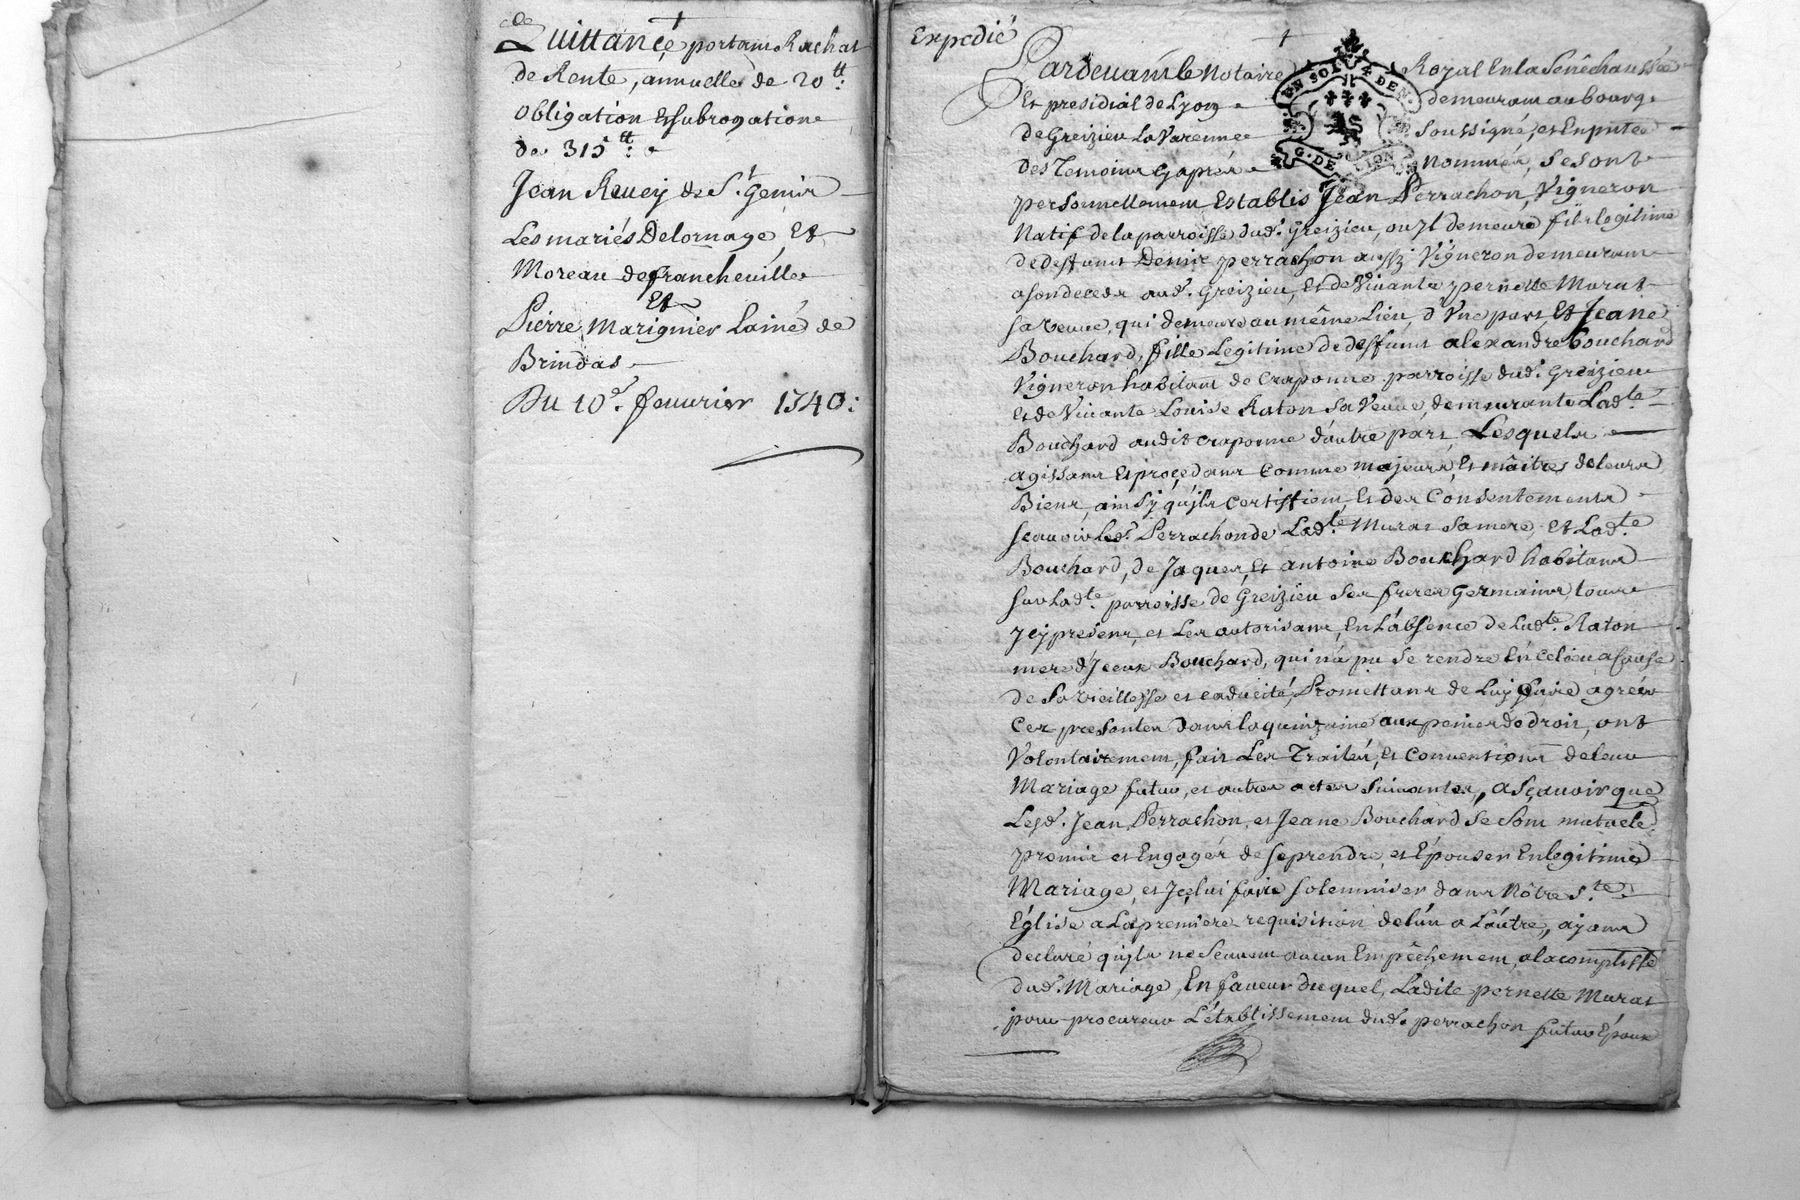 Quittance portant Rachat
de Rente, annuelle de 20 tt:
obligation Et subrogation
de 315 tt:
Jean Revey de St. Genis
Les mariés Delornage, Et
Moreau de francheville
Et
Pierre Marignier Lainé de
Brindas
Du 10e. feuvrier 1740:
Expedié
Pardevant le Notaire Royal En la Senêchaussée
Et presidial de Lyon demeurant au bourg
de Greizieu La Varenne soussigné, et En pnce
des Temoins Cy aprés Nommés, se sont
personnellement Establis Jean Perrachon, Vigneron
Natif de la parroisse dud. Greizieu, ou Jl demeure fils legitime
de deffunt Denis perrachon aussy Vigneron demeurant
a son deceds aud. Greizieu, Et de Vivante pernette Murat
sa veuve, qui demeure au même Lieu, d'Vne part, Et Jeane
Bouchard, fille Legitime de deffunt alexandre bouchard
Vigneron habitant de Craponne parroisse dud. Greizieu
et de Vivante Louise Raton sa Veuve, demeurante Ladte
Bouchard audit Craponne d'autre part, Lesquels
agissant Et proçedant comme majeurs, Et maîtres de leurs
Biens, ainsy qu'jls certiffient, Et des Consentements
scauoir Led. Perrachon de Ladte. Murat sa mere, et Ladte.
Bouchard, de Jaques, Et antoine Bouchard habitans
sur Ladte. parroisse de Greizieu ses freres Germains tous
Jcy presens, et Les autorisant, En L'absence de Ladte. Raton
mere d'Jceux Bouchard, qui n'a pu se rendre En ce lieu a cause
de sa vieillesse et caducité, Promettant de Luy faire agréer
Ces presentes dans la quinzaine aux peines de droit, ont
Volontairement, fait Les Traités, et Conventions de leur
Mariage futur, et autres actes suivantes, a sçavoir que
Lesd. Jean Perrachon, et Jeane Bouchard se sont mutuele.
promis et Engagés de se prendre, et Épouser En legitime
Mariage, et Jçelui faire solemniser dans Nôtre Ste.
Église a La premiere requisition de l'un a L'autre, ayant
declaré qu'jls ne sçavent aucun Empêchement, a la complisse
dud. Mariage, En faveur duquel, Ladite pernette Murat
pour procurer L'établissement dud. perrachon futur Époux